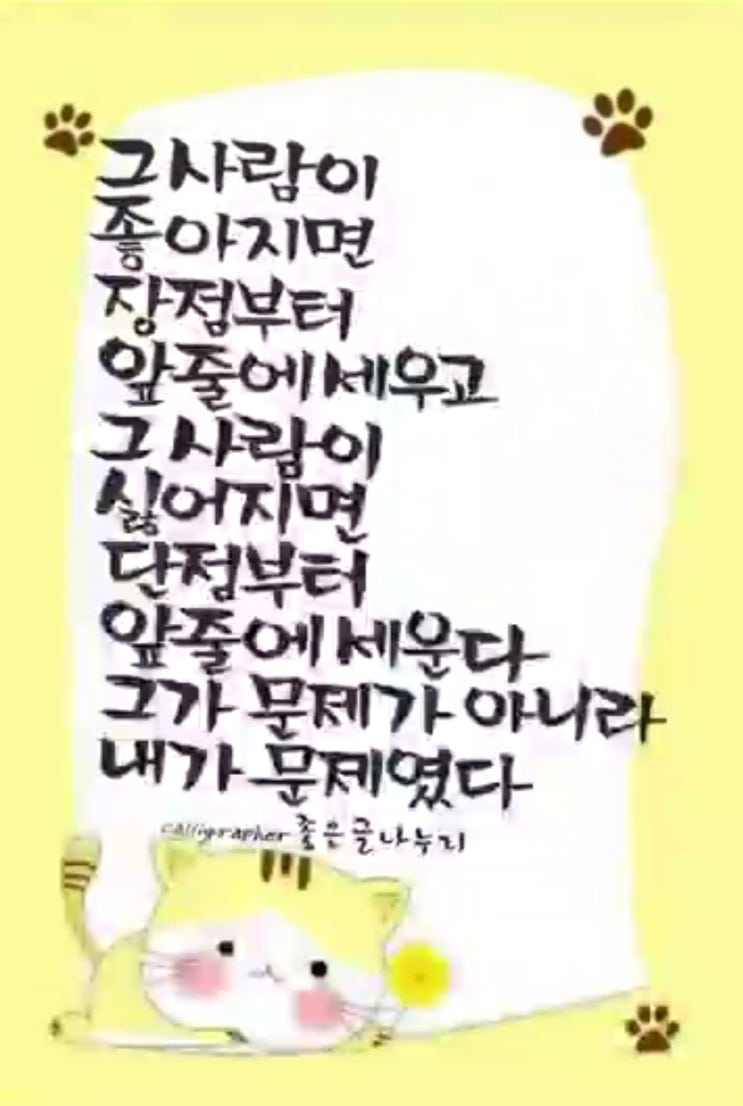 그 사람이
좋아지면
장점부터
앞줄에 세우고
그 사람이
싫어지면
단점부터
앞줄에 세운다
그가 문제가 아니라
내가 문제였다
calligrapher 좋은글나누리